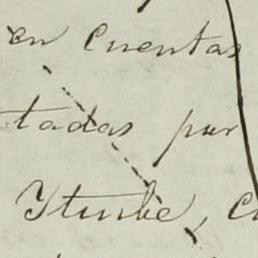 en Cuentas
tadas por
Yturbe, C